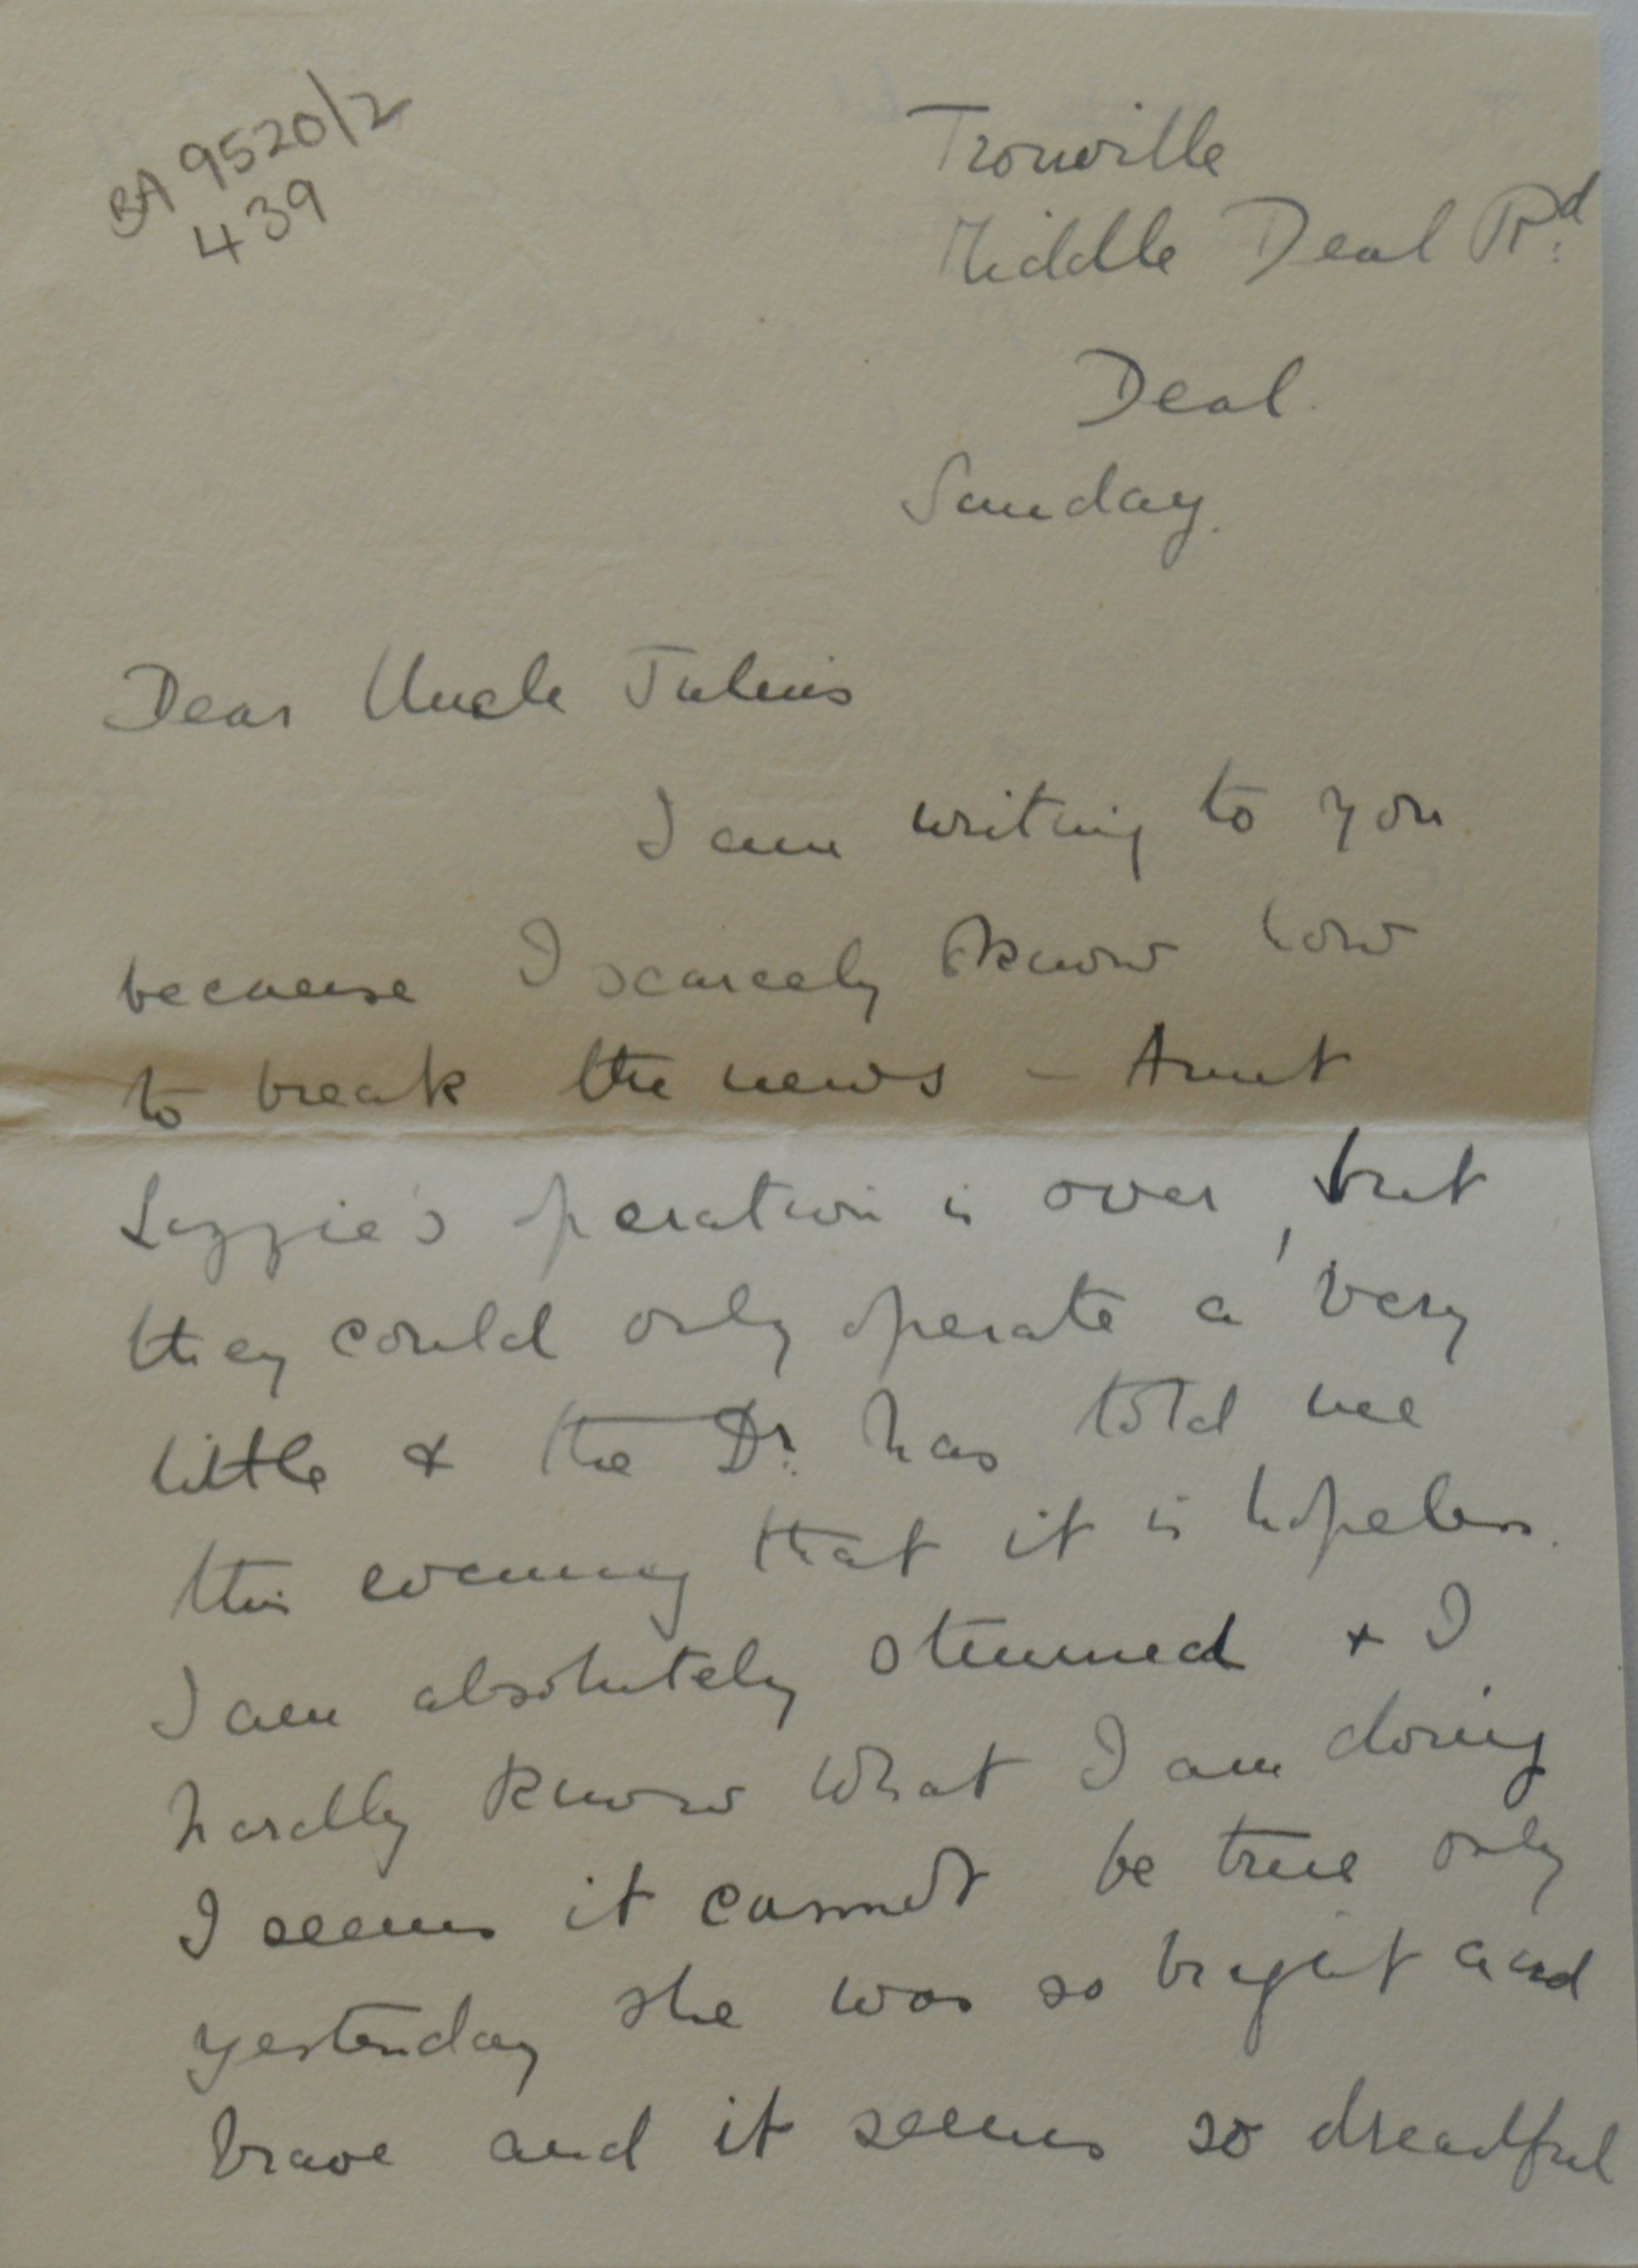 BA 9520/2
439
Trouville
Middle Deal Rd.
Deal.
Sunday.
Dear Uncle Julius
I am writing to you
because I scarcely know how
to break the news – Aunt
Lizzie's operation is over, but
they could only operate a very
little & the Dr. has told me
this evening that it is hopeless.
I am absolutely stunned & I
hardly know what I am doing
I seems it cannot be true only
yesterday she was so bright and
brave and it seems so dreadful